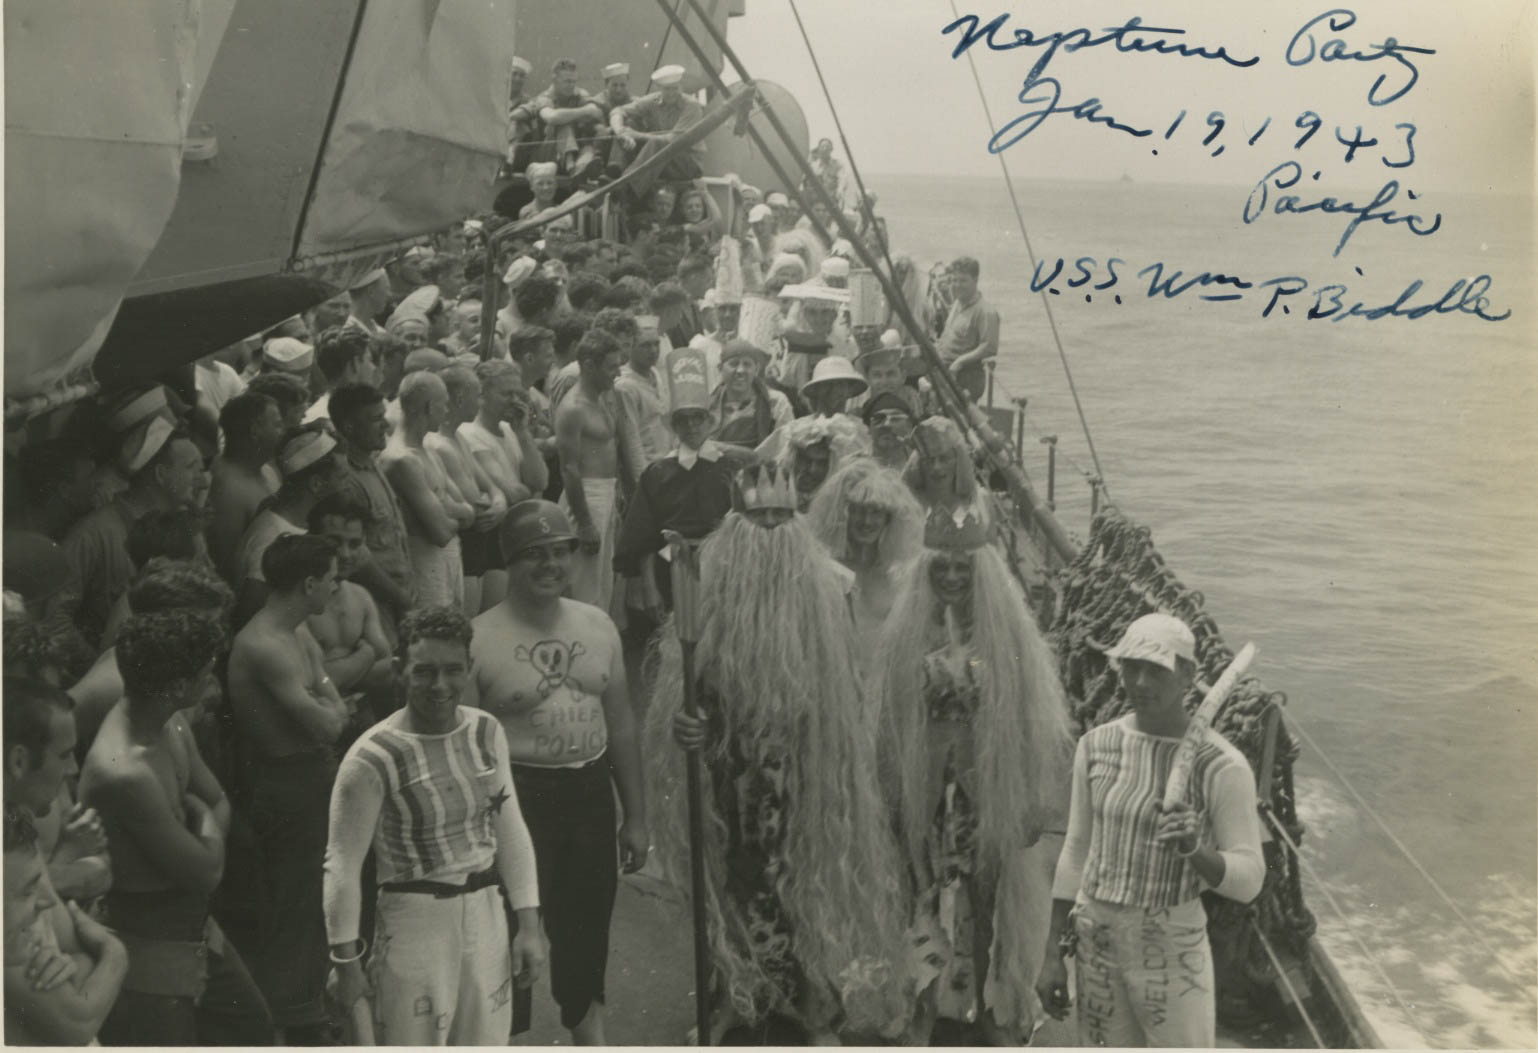 Neptune Party
Jan. 19, 1943
Pacific
U.S.S. Wm P. Biddle
S
CHIEF
POLICE
SHELLBACK
WELCOMES
YOU